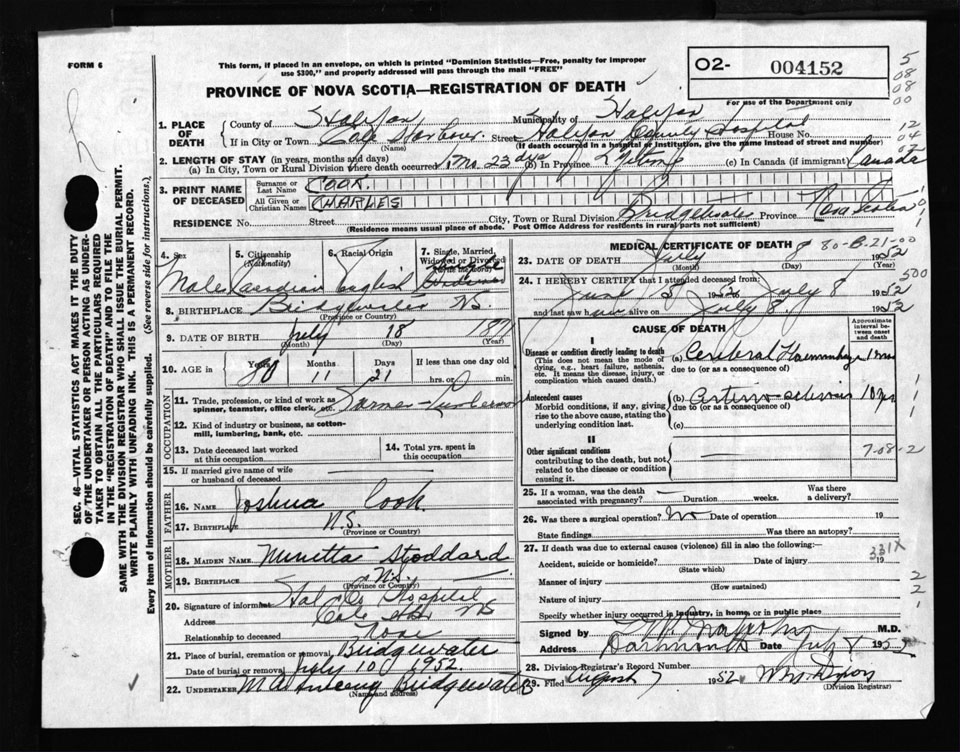 FORM 6
This form, if placed in an envelope, on which is printed "Dominion Statistics—Free, penalty for improper
use $300," and properly addressed will pass through the mail "FREE"
PROVINCE OF NOVA SCOTIA—REGISTRATION OF DEATH
O2- 004152
For use of the Department only
5
08
08
00
12
04
02
1. PLACE OF DEATH County of Halifax Municipality of Halifax
If in City or Town Cole Harbour Street Halifax County Hospital House No.
(Name) (If death occurred in a hospital or institution, give the name instead of street and number)
2. LENGTH OF STAY (in years, months and days)
(a) In City, Town or Rural Division where death occurred 23 dys (b) In Province Lifetime (c) In Canada (if immigrant) Canada
3. PRINT NAME OF DECEASED
Surname or Last Name COOK.
All Given or Christian Names CHARLES
RESIDENCE No. Street City, Town or Rural Division Bridgewater Province Nova Scotia
(Residence means usual place of abode. Post Office Address for residents in rural parts not sufficient)
4. Sex Male
5. Citizenship (Nationality) Canadian
6. Racial Origin English
7. Single, Married, Widowed or Divorced (Write the word)
8. BIRTHPLACE Bridgewater NS.
(Province or Country)
9. DATE OF BIRTH July 18
(Month) (Day) (Year)
10. AGE in Years 80 Months 11 Days 21 If less than one day old
hrs. or min.
OCCUPATION
11. Trade, profession, or kind of work as
spinner, teamster, office clerk, etc. Farmer - Lumberman
12. Kind of industry or business, as cotton-
mill, lumbering, bank, etc.
13. Date deceased last worked
at this occupation
14. Total yrs. spent in
this occupation
15. If married give name of wife
or husband of deceased
FATHER
16. Name Joshua Cook.
17. Birthplace N.S.
(Province or Country)
MOTHER
18. MAIDEN NAME Stoddard
19. BIRTHPLACE N.S.
(Province or Country)
20. Signature of informant Hal Co Hospital
Address Cole Hbr NS
Relationship to deceased None
21. Place of burial, cremation or removal Bridgewater
Date of burial or removal July 10 1952.
22. UNDERTAKER Bridgewater
(Name and address)
MEDICAL CERTIFICATE OF DEATH
80-B-21-00
23. DATE OF DEATH July 8 1952
(Month) (Day)
24. I HEREBY CERTIFY that I attended deceased from:
500
June 1952 to July 8 1952
and last saw him alive on July 8 1952
CAUSE OF DEATH
Approximate interval between onset and death
I
Disease or condition directly leading to death
(This does not mean the mode of
dying, e.g., heart failure, asthenia,
etc. It means the disease, injury, or
complication which caused death.)
(a) Cerebral Haemorrhage
due to (or as a consequence of)
Antecedent causes
Morbid conditions, if any, giving
rise to the above cause, stating the
underlying condition last.
(b) Arterio-sclerosis 10 yrs
due to (or as a consequence of)
(c)
II
Other significant conditions
contributing to the death, but not
related to the disease or condition
causing it.
7-08-2
25. If a woman, was the death
associated with pregnancy? Duration weeks. Was there
a delivery?
26. Was there a surgical operation? No Date of operation 19
State findings Was there an autopsy?
27. If death was due to external causes (violence) fill in also the following:—
331X
Accident, suicide or homicide? Date of injury 19
(State which)
Manner of injury
(How sustained)
Nature of injury
Specify whether injury occurred in industry, in home, or in public place
Signed by M.D.
Address Dartmouth Date July 8 1952
28. Division Registrar's Record Number
29. Filed August 7 1952
(Division Registrar)
2
2
1
SEC. 46—VITAL STATISTICS ACT MAKES IT THE DUTY
OF THE UNDERTAKER OR PERSON ACTING AS UNDER-
TAKER TO OBTAIN ALL THE PARTICULARS REQUIRED
IN THE "REGISTRATION OF DEATH" AND TO FILE THE
SAME WITH THE DIVISION REGISTRAR WHO SHALL ISSUE THE BURIAL PERMIT.
WRITE PLAINLY WITH UNFADING INK. THIS IS A PERMANENT RECORD.
Every item of Information should be carefully supplied. (See reverse side for instructions.)